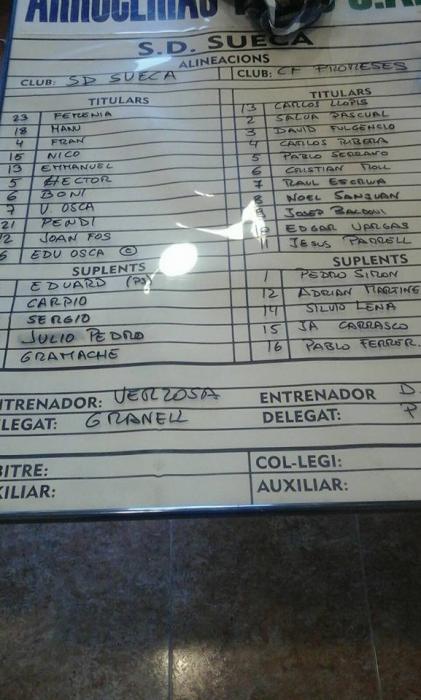 S.D. SUECA
ALINEACIONS
CLUB: SD SUECA
TITULARS
23 FERENIA
18 MANU
4 FRAN
15 NICO
13 EMMANUEL
5 HECTOR
6 BONI
7 V. OSCA
21 PENDI
12 JOAN FOS
6 EDU OSCA (C)
SUPLENTS
EDUARD (PS)
CARPIO
SERGIO
JULIO PEDRO
GRAMACHE
CLUB: CF PROMESES
TITULARS
13 CARLOS LLOPIS
2 SALVA PASCUAL
3 DAVID FULGENCIO
4 CARLOS RIBERA
5 PABLO SERRANO
6 CRISTIAN MOLL
7 RAUL ESCRIVA
8 NOEL SANJUAN
9 JOSEP
10 EDGAR VARGAS
11 JESUS PARRELL
SUPLENTS
1 PEDRO SIMON
12 ADRIAN MARTINE
14 SILVIO LENA
15 JA CARRASCO
16 PABLO FERRER
NTRENADOR: VERZOSA
LEGAT: GRANELL
ENTRENADOR D.
DELEGAT: P
BITRE:
XILIAR:
COL-LEGI:
AUXILIAR: